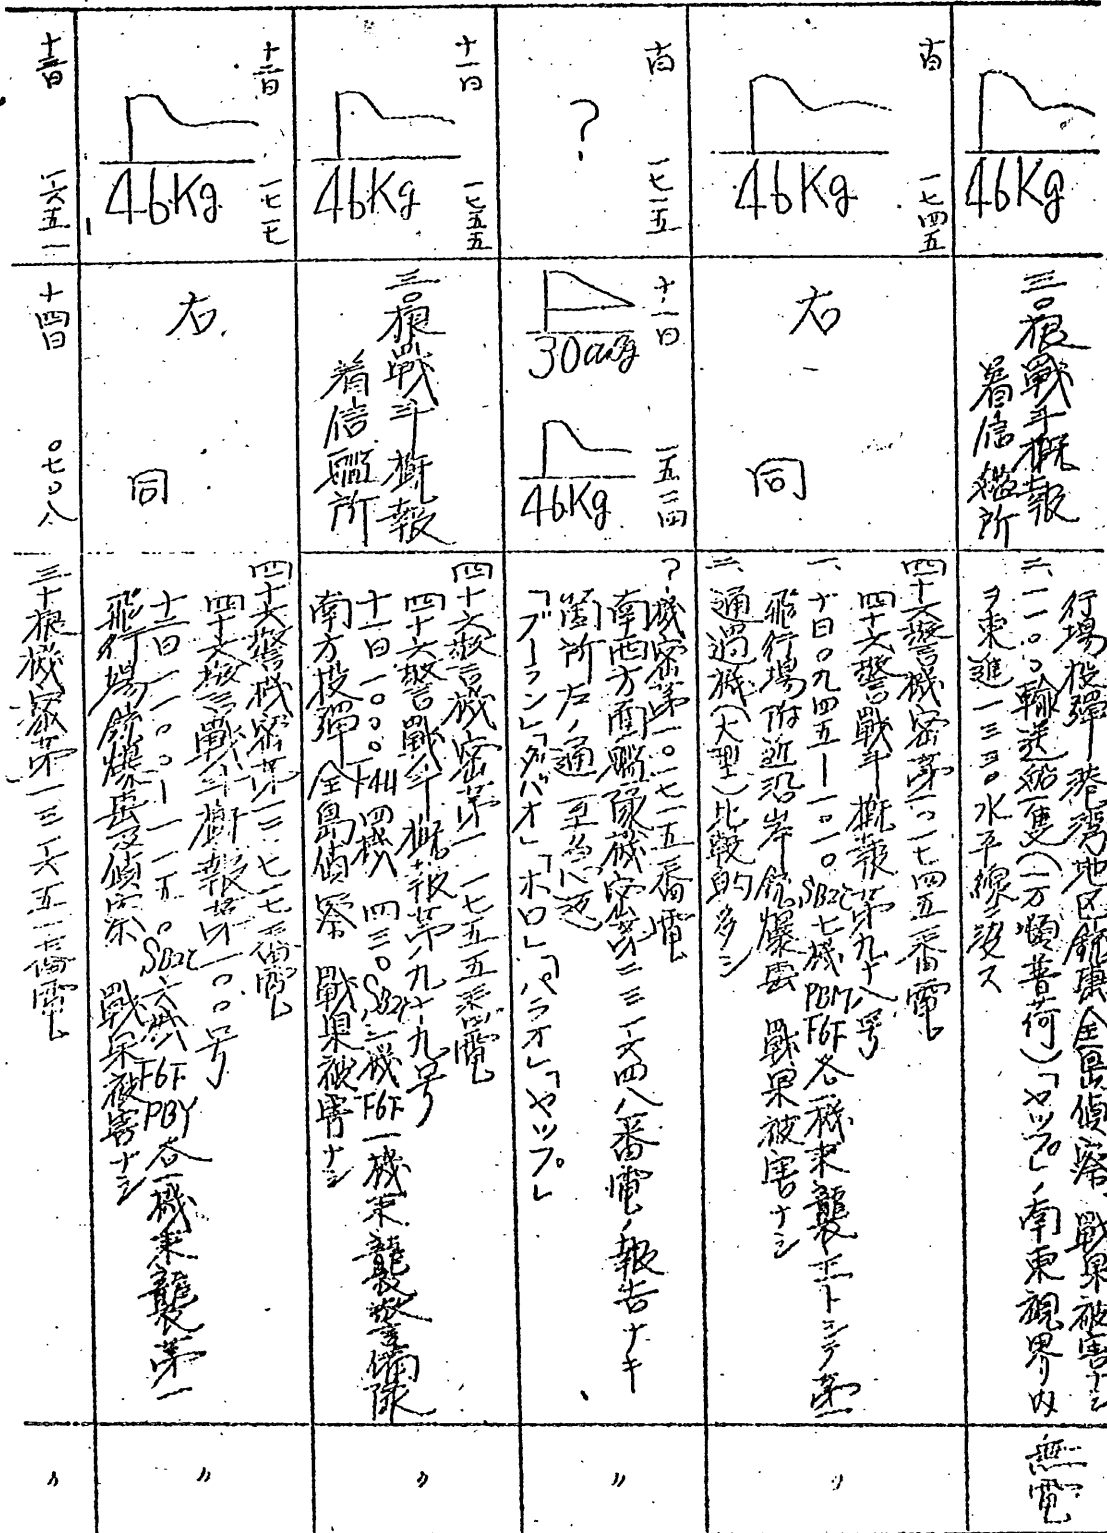 46Kg
三〇根戰斗概報
着信艦所
行場投彈 港湾地区銃爆 全島偵察 戰果被害ナシ
二、一一〇〇輸送船一隻(一万噸普荷)「ヤップ」ノ南東視界内
ヲ東進一三三〇水平線ニ没ス
無電
十日 一七四五
46Kg
右 同
四十六警機密第一〇一七四五番電
四十六警戰斗概報第九十八号
一、十日〇九四五—一〇一〇SB2C七機PBM F6F各一機来襲主トシテ第一
飛行場附近沿岸銃爆撃 戰果被害ナシ
二、通過機(大型)比較的多シ
〃
十日 一七一五
?
十一日 一五二四
30
46Kg
?機密第一〇一七一五番電
南西方面艦隊機密第二三一六四八番電ノ報告ナキ
箇所左ノ通 至急返
「ブーラン」「ダバオ」「ホロ」「パラオ」「ヤップ」
〃
十一日 一七五五
46Kg
三〇根戰斗概報
着信艦所
四十六警機密第一一一七五五番電
四十六警戰斗概報第九十九号
十一日一〇〇〇F4U四機 四三〇SB2C三機F6F一機来襲警備隊
南方投彈 全島偵察 戰果被害ナシ
〃
十二日 一七一七
46Kg
右 同
四十六警機密第一二一七一七番電
四十六警戰斗概報第一〇〇号
十二日一一〇〇—一一五〇SB2C六機F6F PBY各一機来襲第一
飛行場銃爆撃及偵察 戰果被害ナシ
〃
十三日 一六五一
十四日 〇七〇八
三十根機密第一三一六五一番電
〃